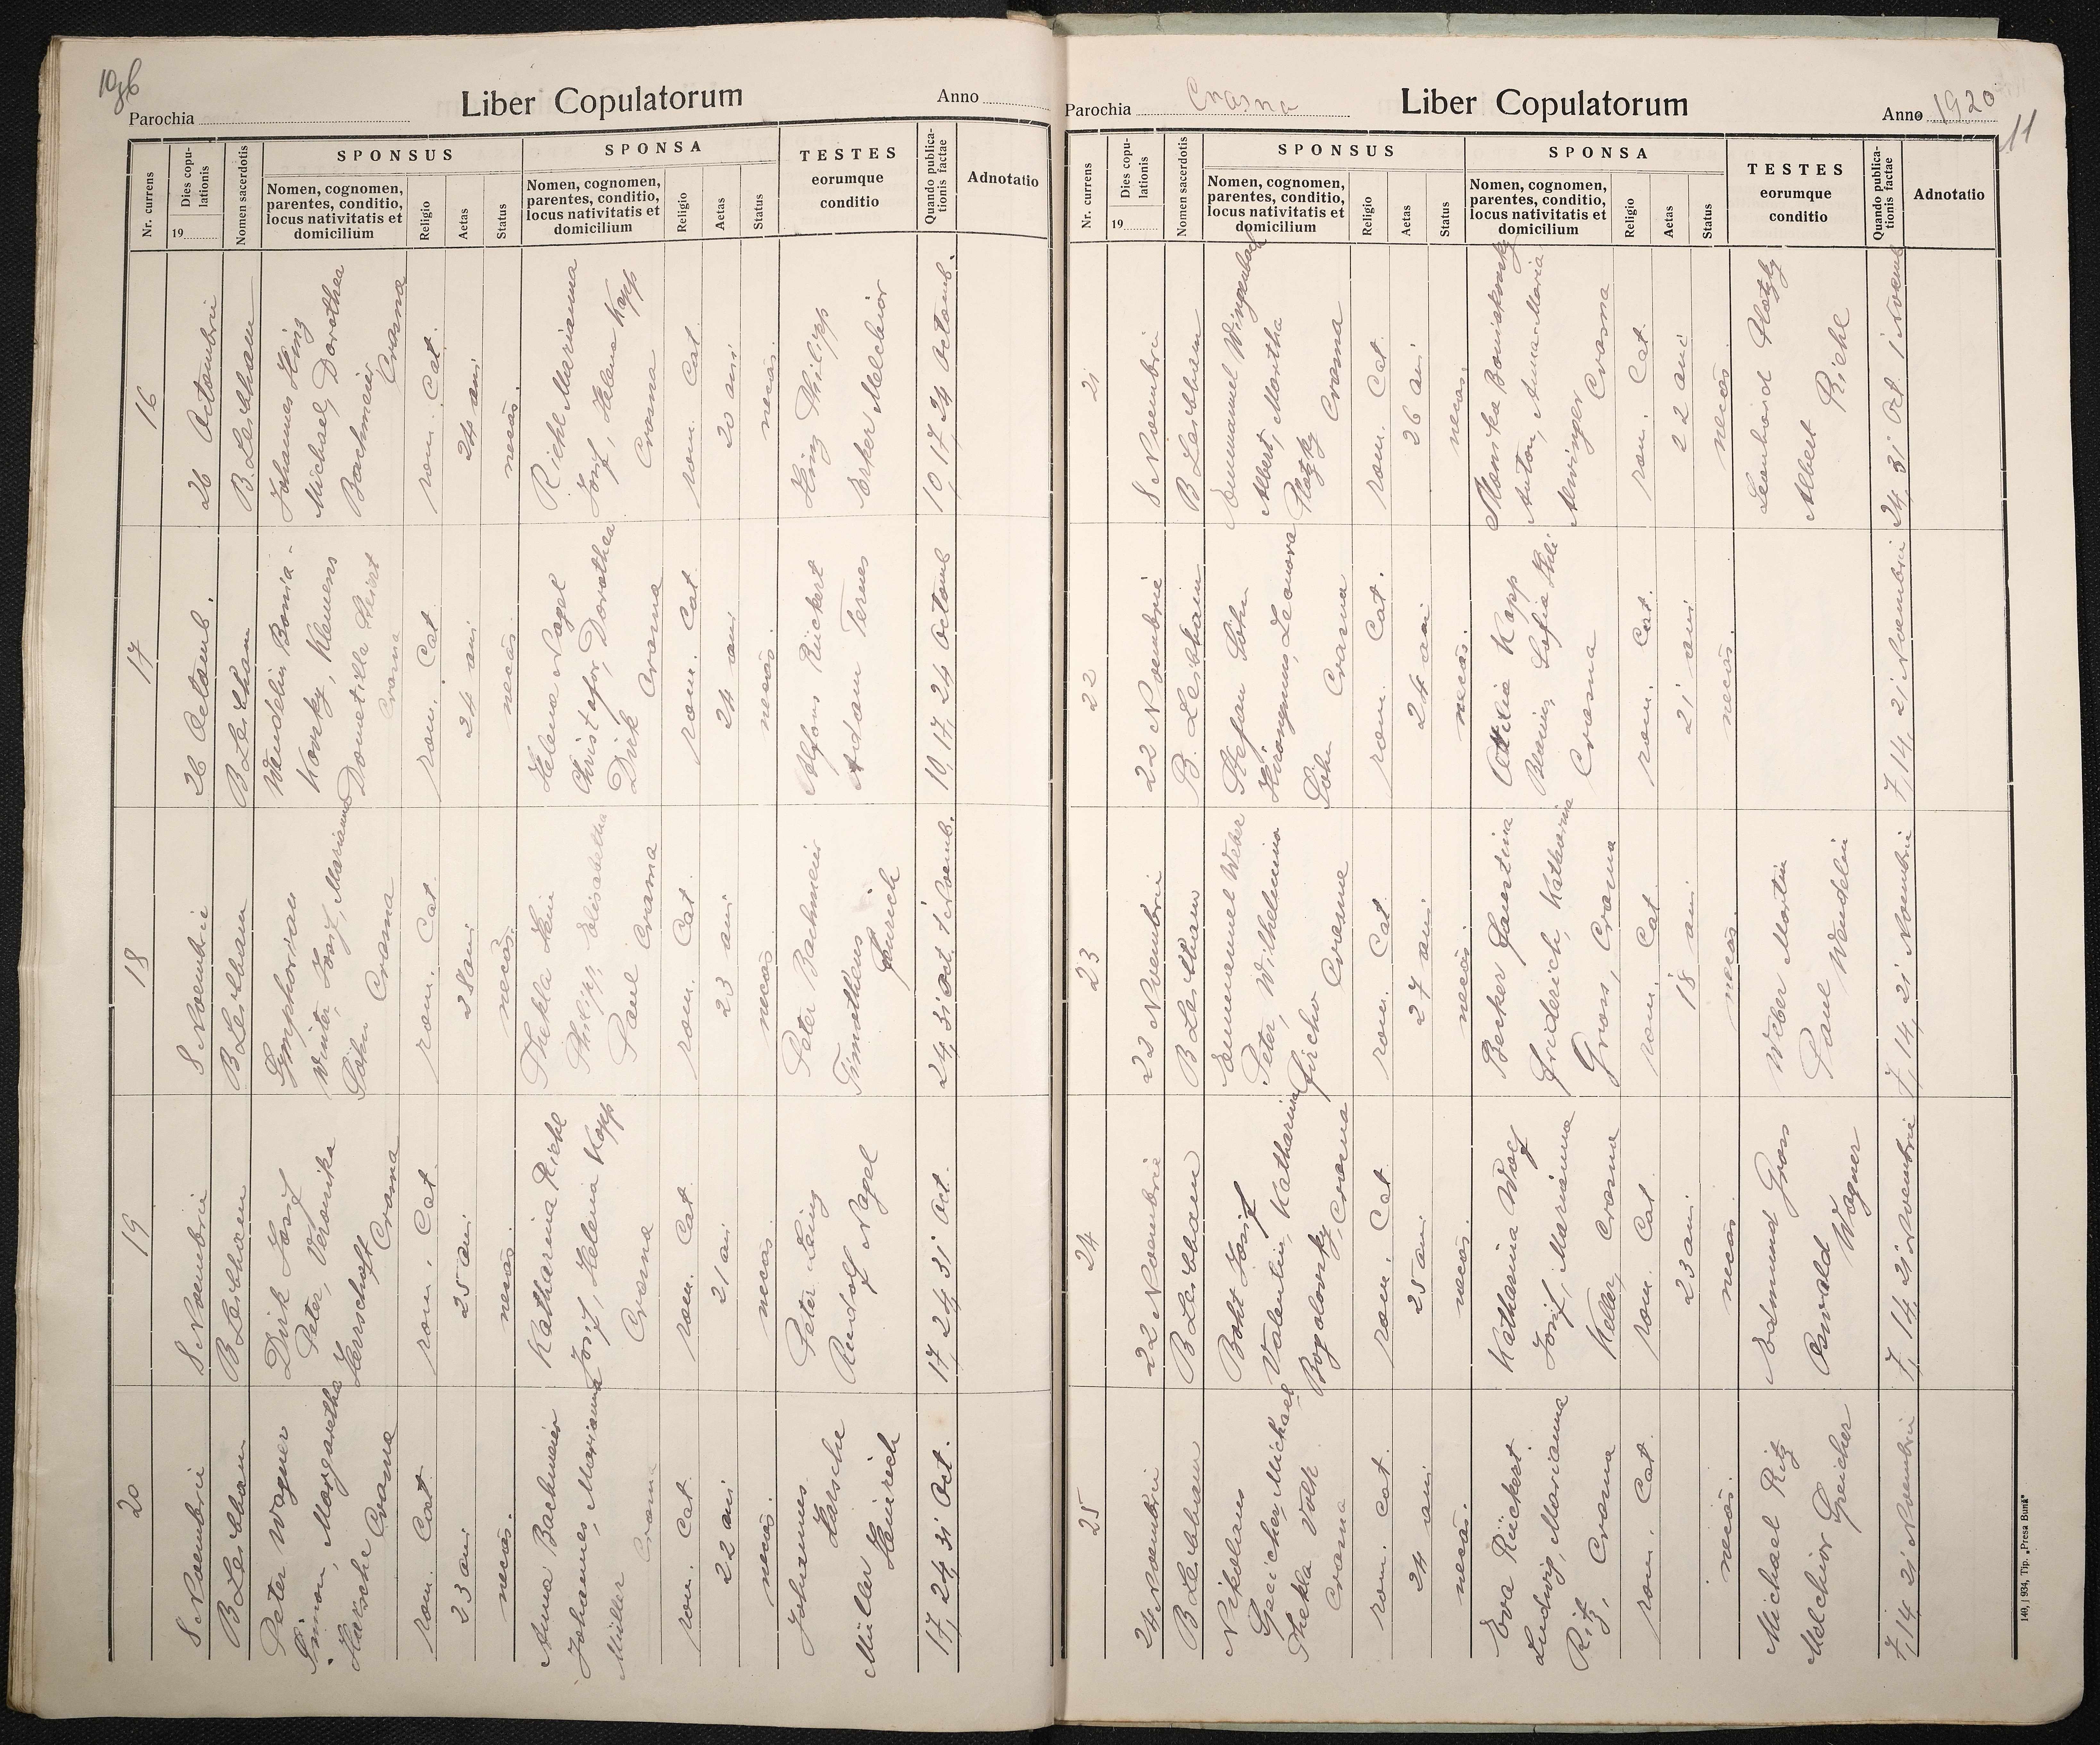 10 & b
Parochia
Liber Copulatorum
Anno
Nr. currens
Dies copu-
lationis
19
Nomen sacerdotis
SPONSUS
Nomen, cognomen,
parentes, conditio,
locus nativitatis et
domicilium
Religio
Aetas
Status
SPONSA
Nomen, cognomen,
parentes, conditio,
locus nativitatis et
domicilium
Religio
Aetas
Status
TESTES
eorumque
conditio
Quando publica-
tionis factae
Adnotatio
16
26 Octombrie
B. Leibham
Johannes Hing
Michael, Dorothea
Bachmeier
Crasna
rom. Cat.
24 ani
necăs.
Riehl Marianna
Josif, Helena Kapp
Crasna
rom. Cat.
20 ani
necăs.
Hing Philipp
Erker Melchior
10, 17, 24 Octomb.
17
26 Octomb.
B Leibham
Wendelin Bonia-
kovsky, Klemens
Dometilla Steiert
Crasna
rom. Cat
24 ani
necăs.
Helena Nagel
Christofor, Dorothea
Dirk Crasna
rom. Cat.
24 ani
necăs.
Alfons Rückert
Adam Ternes
10, 17, 24 Octomb
18
8 Noembrie
B Leibham
Symphorian
Winter, Josif, Marianna
Söhn Crasna
rom. Cat
28 ani
necăs.
Thekla Hein
Philipp, Elisabetha
Paul Crasna
rom. Cat
23 ani
necăs
Peter Bachmeier
Timotheus
24, 31 Oct. 1 Noemb.
19
8 Noembrie
B Leibham
Dirk Josif
Peter, Veronika
Herrschaft
Crasna
rom. Cat
25 ani
necăs.
Katharina Riehl
Josif, Helena Kapp
Crasna
rom. Cat
21 ani
necăs.
Peter Leinz
Rudolf Nagel
17, 24, 31 Oct.
20
8 Noembrie
B Leibham
Peter Wagner
Simon, Margaretha
Harsche Crasna
rom. Cat.
23 ani
necăs.
Anna Bachmeier
Johannes, Marianna
Müller Crasna
rom. Cat.
22 ani
necăs.
Johannes
Harsche
Müller Heinrich
17, 24, 31 Oct.
Parochia Crasna
Liber Copulatorum
Anno 1920
11
Nr. currens
Dies copu-
lationis
19
Nomen sacerdotis
SPONSUS
Nomen, cognomen,
parentes, conditio,
locus nativitatis et
domicilium
Religio
Aetas
Status
SPONSA
Nomen, cognomen,
parentes, conditio,
locus nativitatis et
domicilium
Religio
Aetas
Status
TESTES
eorumque
conditio
Quando publica-
tionis factae
Adnotatio
21
8 Noembrie
B Leibham
Emmanuel Wingenbach
Albert, Martha
Plotzky Crasna
rom. Cat.
26 ani
necăs.
Monika Boniakowsky
Anton, Anna-Maria
Arninger Crasna
rom. Cat.
22 ani
necăs.
Leonhard Plotzky
Albert Riehl
24, 31 Oct. 1 Noemb
22
22 Noembrie
B. Leibham
Stefan Söhn
Hieronymus, Leonora
Söhn Crasna
rom. Cat.
24 ani
necăs.
Otilia Kapp
Crasna
rom. Cat.
21 ani
necăs.
7, 14, 21 Noembrie
23
22 Noembrie
B Leibham
Emmanuel Weber
Peter, Wilhelmina
Fircho Crasna
rom. Cat
27 ani
necăs.
Becker Faustina
Friderich, Katharina
Gross, Crasna
rom. Cat
18 ani
necăs.
Weber Martin
Paul Wendelin
7, 14, 21 Noembrie
24
22 Noembrie
B Leibham
Boht Josif
Valentin, Katharina
Bogolowsky, Crasna
rom. Cat
25 ani
necăs.
Katharina Wolf
Josif, Marianna
Keller, Crasna
rom. Cat
23 ani
necăs.
Edmund Gross
Oswald
Wagner
7, 14, 21 Noembrie
25
24 Noembrie
B Leibham
Nikolaus
Speicher, Michael
Thekla Volk
Crasna
rom. Cat.
24 ani
necăs.
Eva Rückert
Ludwig, Marianna
Ritz, Crasna
rom. Cat.
necăs.
Michael Ritz
Melchior Speicher
7, 14, 21 Noembrie
140, 1934, Tip. „Presa Bună"